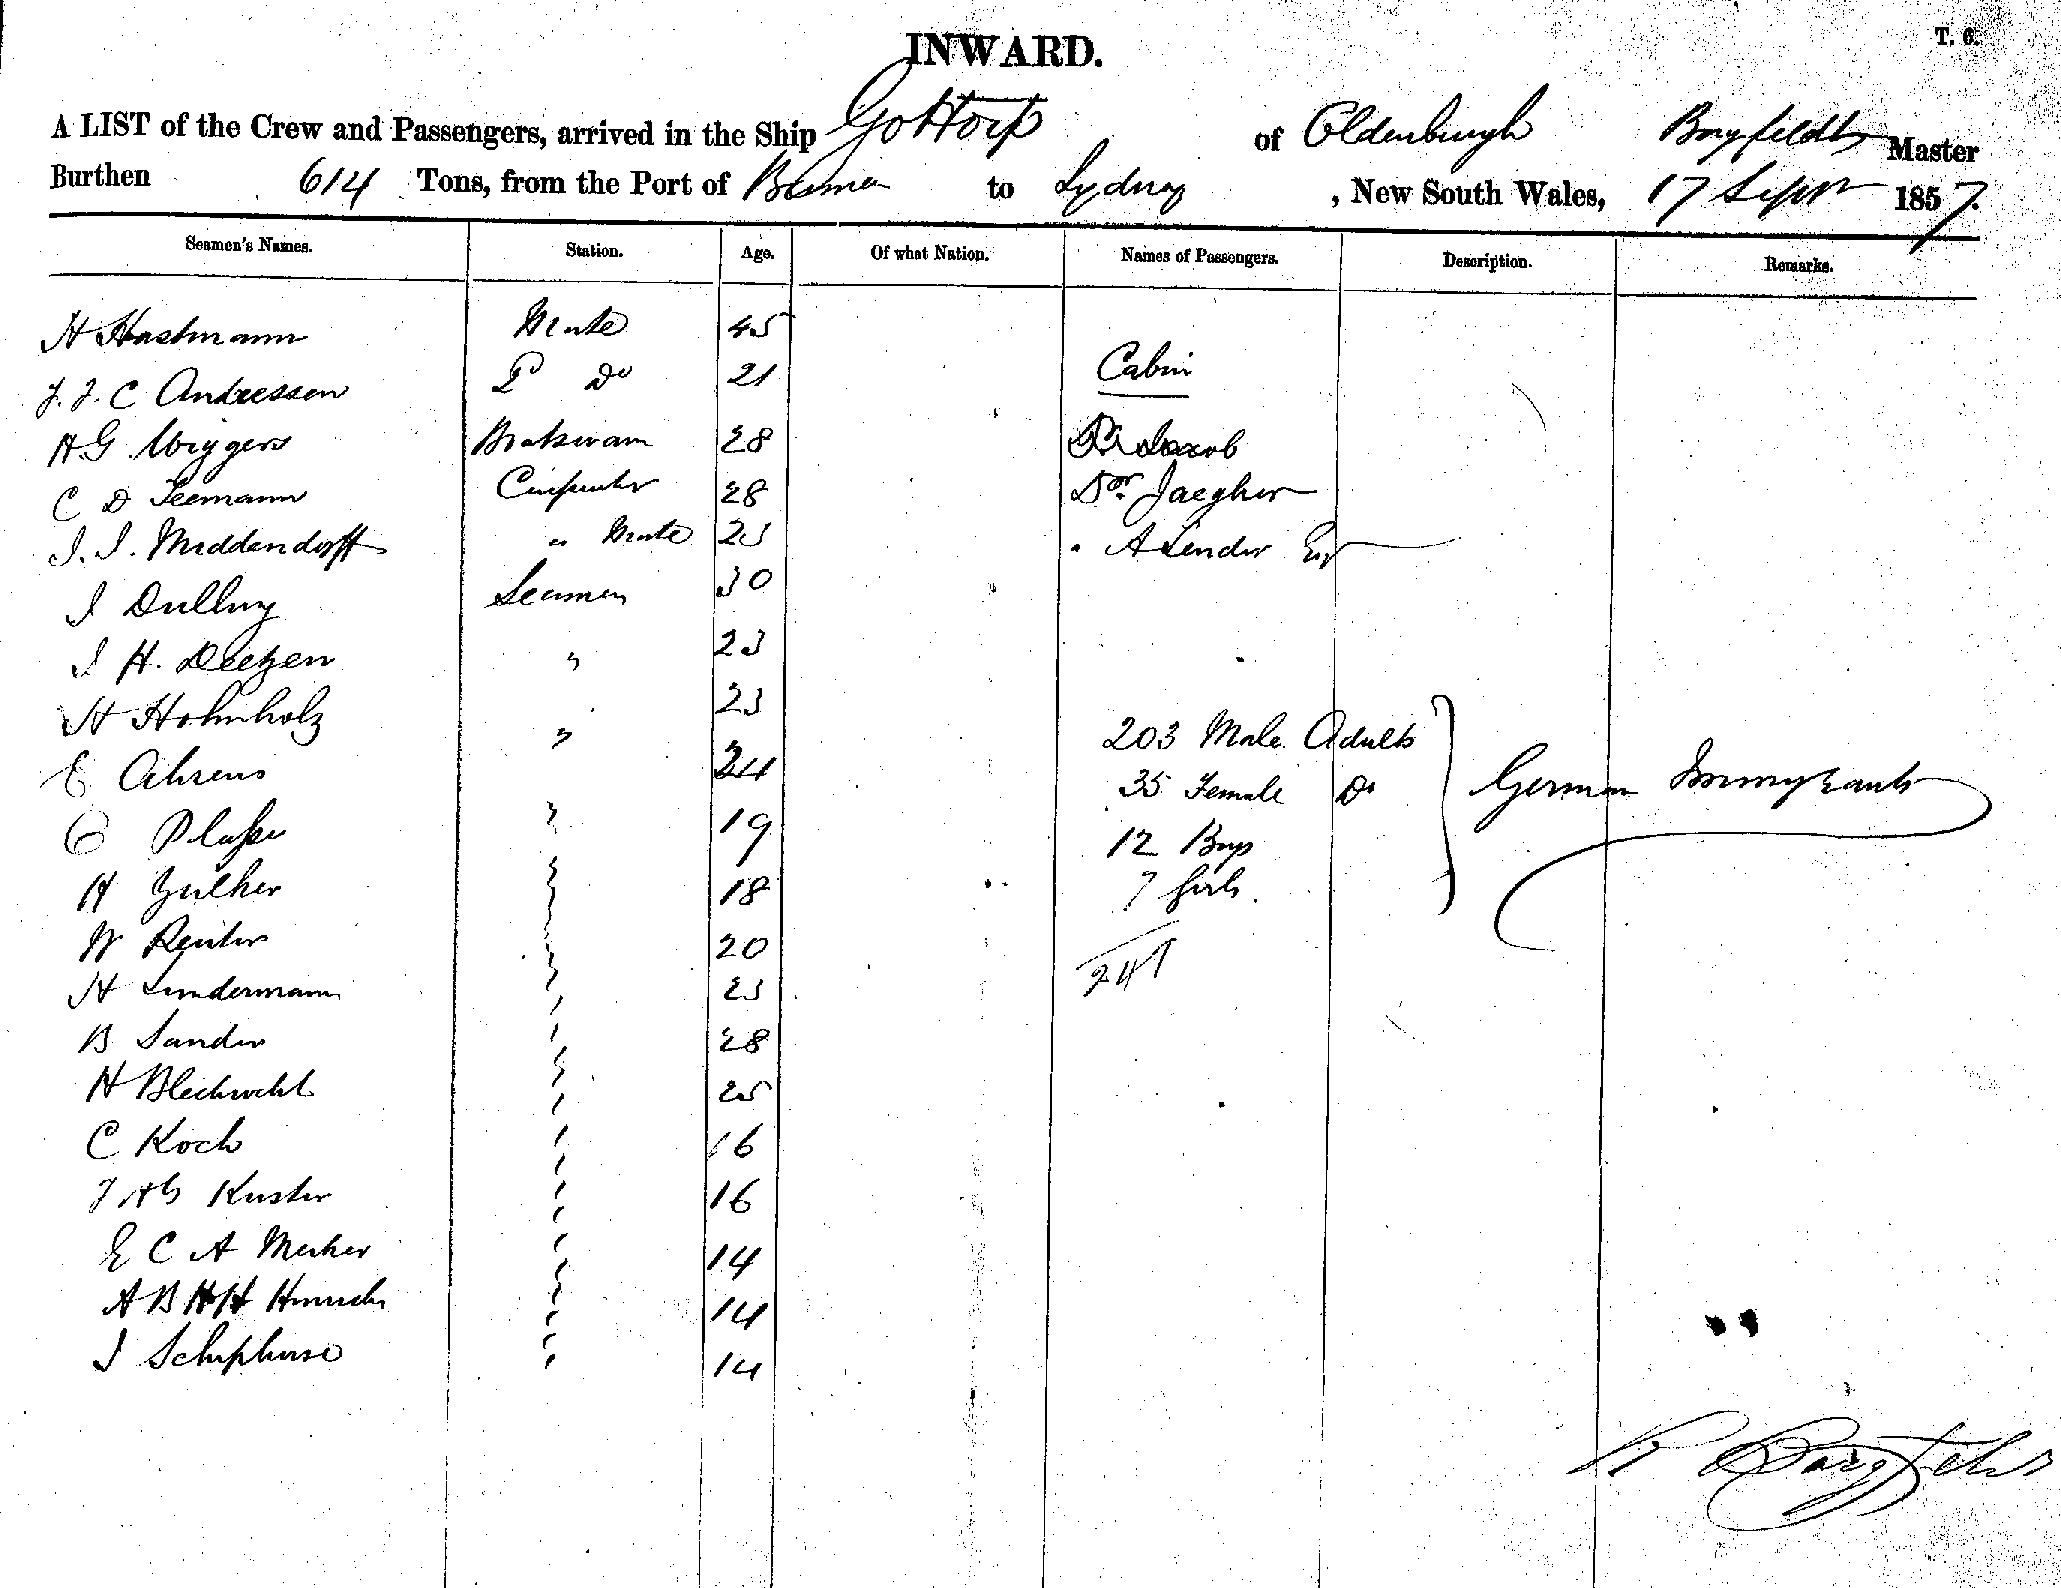 INWARD.
T. 6.
A LIST of the Crew and Passengers, arrived in the Ship Gottorp of Oldenburgh Master
Burthen 614 Tons, from the Port of Bremen to Sydney, New South Wales, 17 Sept 1857.
Seamen's Names. Station. Age. Of what Nation. Names of Passengers. Description. Remarks.
H Hastmann Mate 45
Cabin
J. J. C Andressen 2d Do 21
H G Wiggers Boatswain 28
C D Seemann Carpenter 28 Dr. Jaegher
J. J. Middendorff " Mate 23 " A Sender Esq
J Seamen 30
J H. Dietzen " 23
H Hohnholz " 23
203 Male Adults
E Ahrens " 24 German Immigrants
35 Female Do
C " 19
12 Boys
H " 18 7 Girls.
W Reuter " 20
H Lindermann " 23
B Sander " 28
H " 25
C Koch " 16
Kuster " 16
E C A " 14
A B H H Hinrichs " 14
J Schiphorse " 14